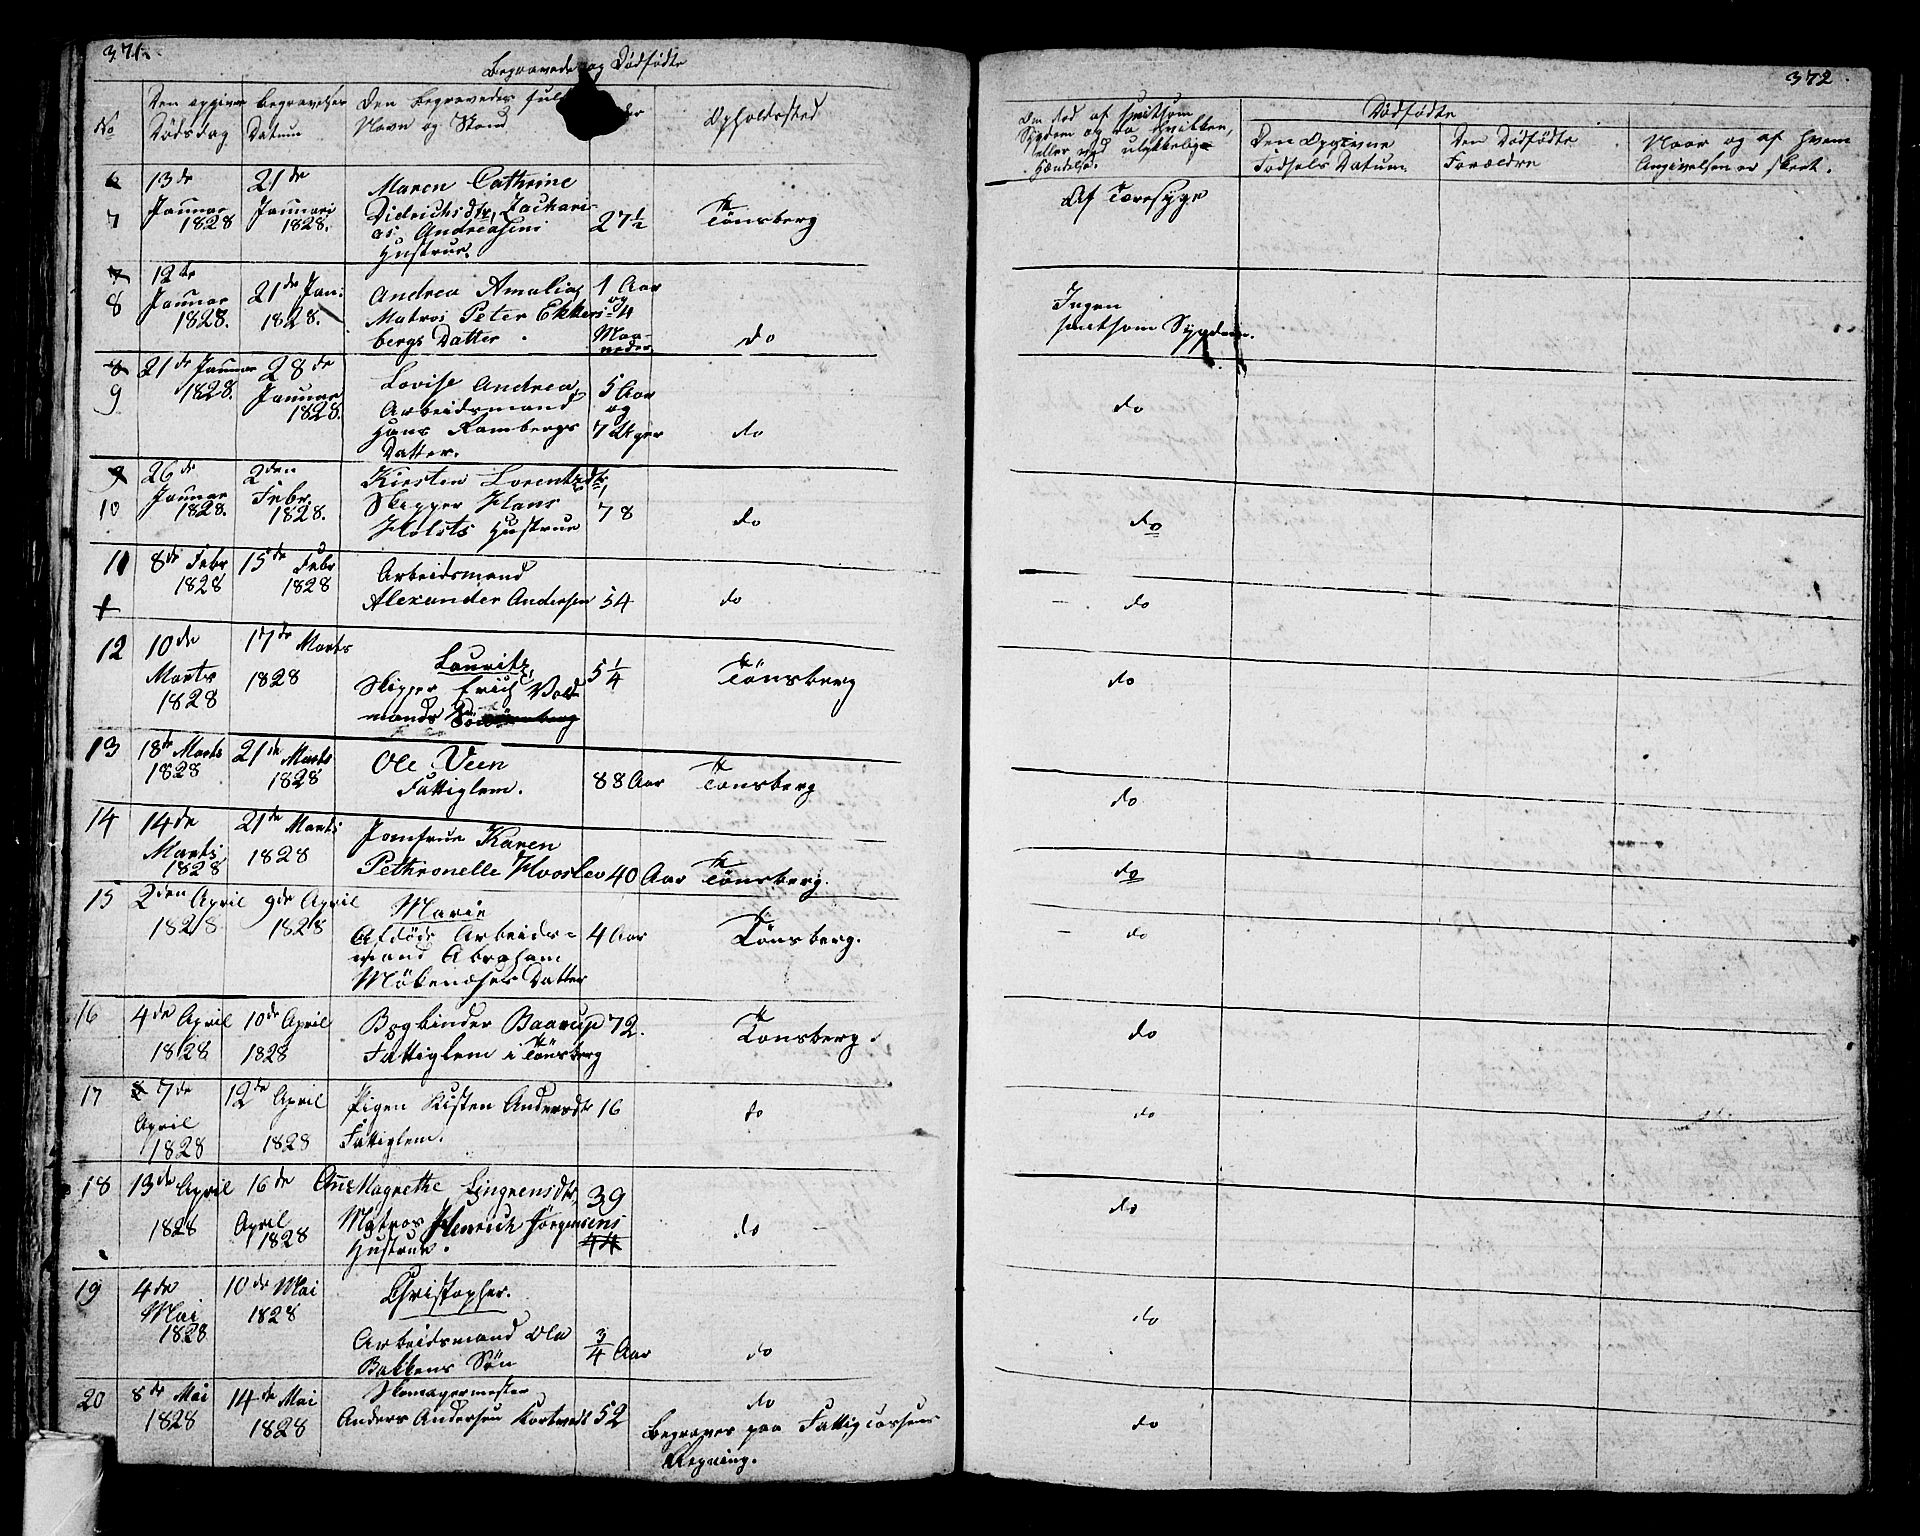 371.
Begravede og Dødfødte
No
Den opgivne Dødsdag
Begravelses Datum
Den Begravedes
Navn og Stand
Opholdssted
6 7
13de Januar 1828
21de Januari 1828.
Maren Cathrine
Didrichsdtr, Zachari-
as Andreasens
Hustrue.
27½
Tønsberg
7 8
12te Januar 1828.
21de Jan: 1828.
Andrea Amalia,
Matros Peter Ekker-
bergs Datter.
1 Aar og 4 Maaneder
do
8 9
21de Januar 1828.
28de Januar 1828.
Lovise Andrea,
Arbeidsmand
Hans Rambergs
Datter.
5 Aar og 7 Uger
do
9 10
26de Januar 1828.
2den Febr. 1828.
Kirsten Lorentzdtr,
Skipper Hans
Holsts Hustrue
78
do
11
8de Febr 1828
15de Febr 1828
Arbeidsmand
Alexander Andersen
54
do
12
10de Marts 1828
17de Marts 1828
Lauritz,
Skipper Erich Vold-
mands Søn
5¼
Tønsberg
13
18de Marts 1828
21de Marts 1828
Ole Veen
Fattiglem.
88 Aar
Tønsberg
14
14de Marts 1828
21de Marts 1828
Jomfrue Karen
Pethronelle Hvoslev
40 Aar
Tønsberg.
15
2den April 1828
9de April 1828
Marie
Afdøde Arbeids=
mand Abraham
Møkenæhs Datter
4 Aar
Tønsberg.
16
4de April 1828
10de April 1828
Bogbinder Baarup
Fattiglem i Tønsberg
72.
Tønsberg
17
7de April 1828
12de April 1828
Pigen Kisten Andersdtr
Fattiglem.
16
do
18
13de April 1828
16de April 1828
Ane Magrethe Lingrensdtr,
Matros Henrich Jørgensens
Hustrue.
39
44
do
19
4de Mai 1828
10de Mai 1828
Christopher.
Arbeidsmand Ole
Bakkens Søn
¾ Aar
do
20
8de Mai 1828
14de Mai 1828
Skomagermester
Anders Andersen Kortvedt
52
do
Begraves paa Fattigcassens
Regning.
372
Om død af smitsom
Sygdom og da hvilken,
eller ved ulykkelig
Hændelse.
Dødfødte
Den Opgivne
Fødsels Datum.
Den Dødfødte
Forældre
Naar og af hvem
Angivelsen er skeet.
Af Tæresyge
Ingen
smitsom Sygdom.
do
do
do
do
do
do
do
do
do
do
do
do